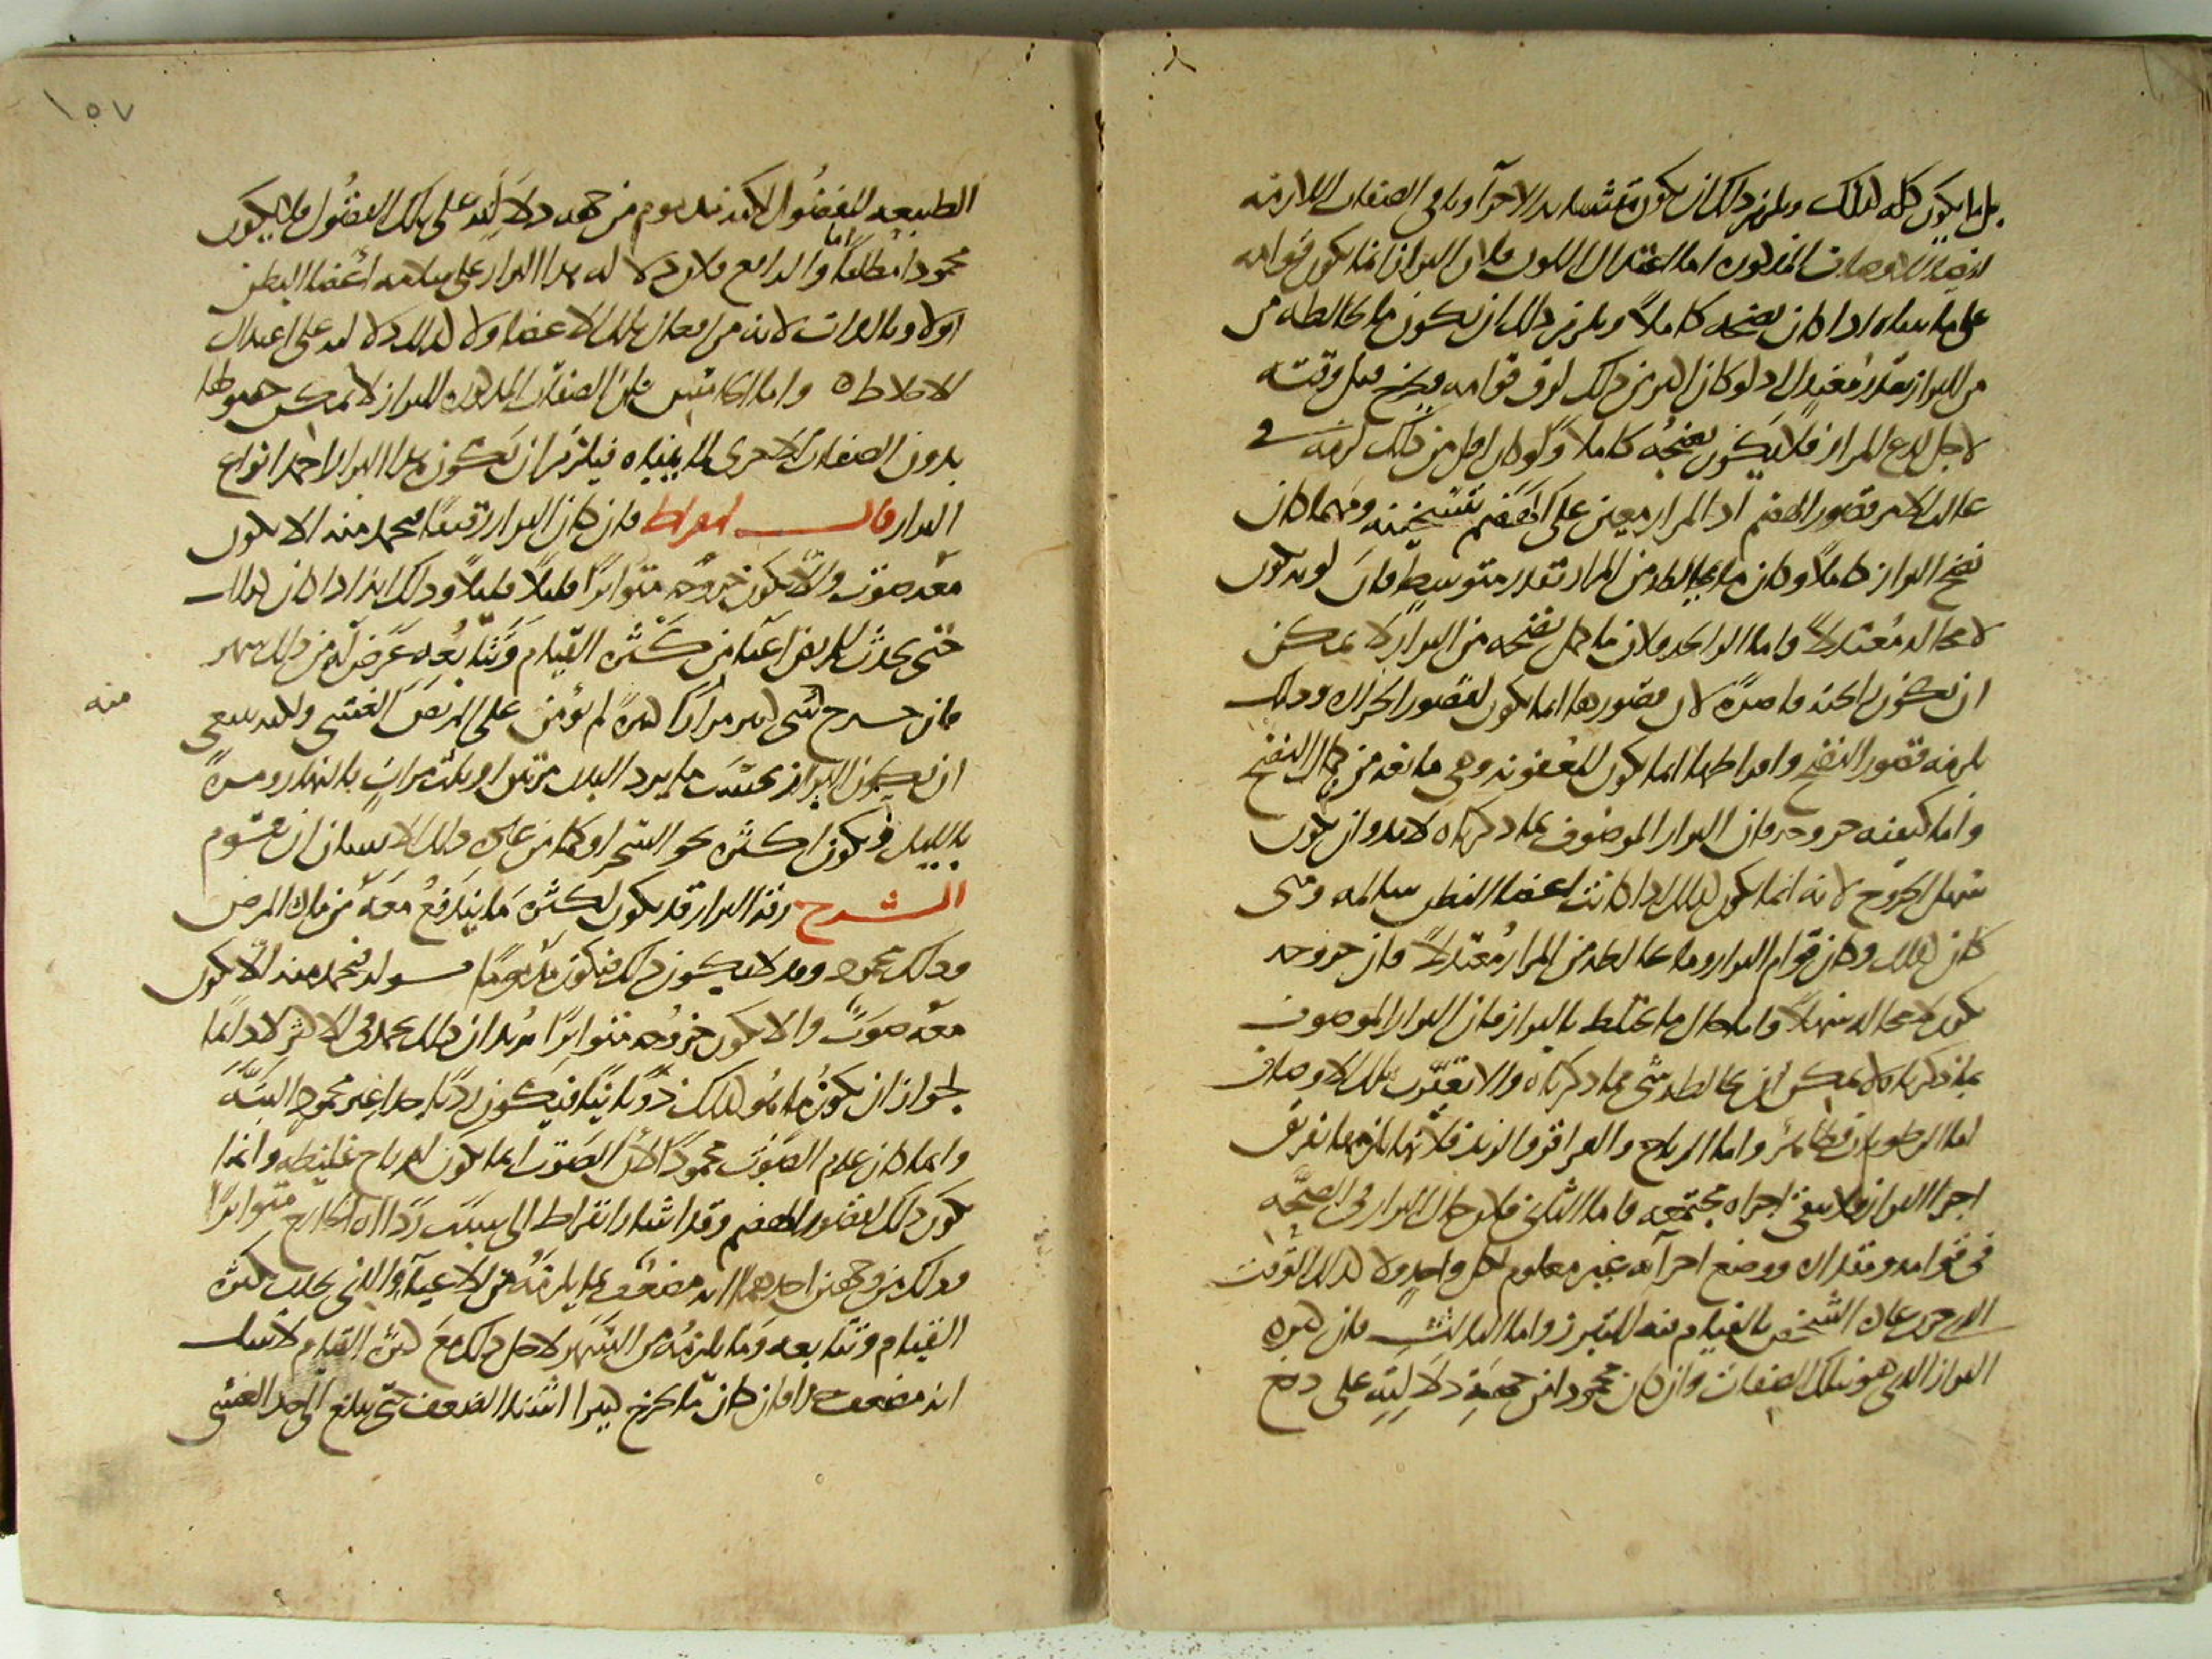 بل ما يكون كله كذلك ويلزم ذلك ان يكون متشابه الاجزآ وباقي الصفات اللازمة
المذكوره اما اعتدال اللون فلان البراز انما يكون قوامه
على ما ينبغي اذا كان نضجه كاملاً ويلزم ذلك ان يكون ما يخالطه من
من المرار بقدر معتدل اذ لو كان اكثر من ذلك لرق قوامه وخرج قبل وقته
لاجل لذع المرار فلا يكون نضجه كاملاً ولو كان اقل من ذلك لزمه في
غالب الامر قصور الهضم اذ المرار معين على الهضم بتسخينه ومهما كان
نضج البراز كاملاً وكان ما يخالطه من المرار بقدر متوسط فان لونه يكون
لا محاله معتدلاً واما الرايحه فلان ما كمل نضجه من البراز لا يمكن
ان يكون رايحته قاصرة لان قصورها انما يكون لقصور الحراره وذلك
يلزمه قصور النضج وافراطها انما يكون للعفونه وهي مانعه من كمال النضج
واما كيفيه خروجه فان البراز الموصوف بما ذكرناه لابد وان يكون
سهل الخروج لانه انما يكون كذلك اذا كانت اعضا البطن سالمه ومتى
كان كذلك وكان قوام البراز وما يخالطه من المرار معتدلاً فان خروجه
يكون لا محاله سهلاً واما حال ما يختلط بالبراز فان البراز الموصوف
بما ذكرناه لا يمكن ان يخالطه شي مما ذكرناه والا تغيرت تلك الاوصاف
اما الرطوبات فظاهر واما الرياح والقراقر والزبد فلانها يلزمها تفريق
اجزا البراز فلا يبقى اجزاه مجتمعه فاما الثاني فلان حال البراز في الصحه
في قوامه ومقداره ووضع اجزآيه غير معلوم لكل واحد ولا كذلك الوقت
الذي جرت عادة الشخص بالقيام فيه للتبرز واما الثالث فان كثرة
البراز الذي هو بتلك الصفات وان كان محمودا من جهة دلالته على دفع
١٥٧
الطبيعه للفضول لكنه مذموم من جهه دلالته على تلك الفضول فلا يكون
محمودا مطلقا واما الرابع فلان دلاله هذا البراز على سلامه اعضا البطن
اولا وبالذات لانه من افعال تلك الاعضا ولا كذلك دلالته على اعتدال
الاخلاط واما الخامس فلان الصفات المذكوره للبراز لا يمكن حصولها
بدون الصفات الاخرى لما بيناه فيلزم ان يكون هذا البراز احمد انواع
البراز قال ابقراط فان كان البراز رقيقا فيحمد منه الا يكون
معه صوت والا يكون خروجه متواترا قليلاً قليلاً وذلك انه اذا كان كذلك
حتى يحدث للمريض اعيا من كثره القيام وتتابعه عرض له من ذلك سهر
فان خرج شي كثير مراراً كثيرة لم يؤمن على المريض الغشى ولكنه ينبغي
منه
ان يكون البراز بحسب ما يرد البدن مرتين او ثلث مرات بالنهار ومرة
بالليل ويكون اكثره نحو السحر او كما من عادة ذلك الانسان ان يقوم
الشرح رقة البراز قد يكون لكثره ما يندفع معه من ماده المرض
وذلك محمود وقد لا يكون ذلك فيكون مذموما قوله فيحمد منه الا يكون
معه صوت والا يكون خروجه متواترا يريد ان ذلك يحمد في الاكثر لا دايما
لجواز ان يكون ما هو كذلك ذوبانيا فيكون رديا جدا غير محمود البته
وانما كان عدم الصوت محمودا لان الصوت انما يكون لرياح غليظه وانما
يكون ذلك لقصور الهضم وقد اشار ابقراط الى سبب رداة الخارج متواترا
وذلك من وجهين احدهما انه مضعف بما يلزمه من الاعيآ والذي يحدث لكثرة
القيام وتتابعه وما يلزمه من السهر لاجل ذلك مع كثرة القيام لا شك
انه مضعف فان كان ما يخرج كثيرا اشتد الضعف حتى يبلغ الى حد الغشى